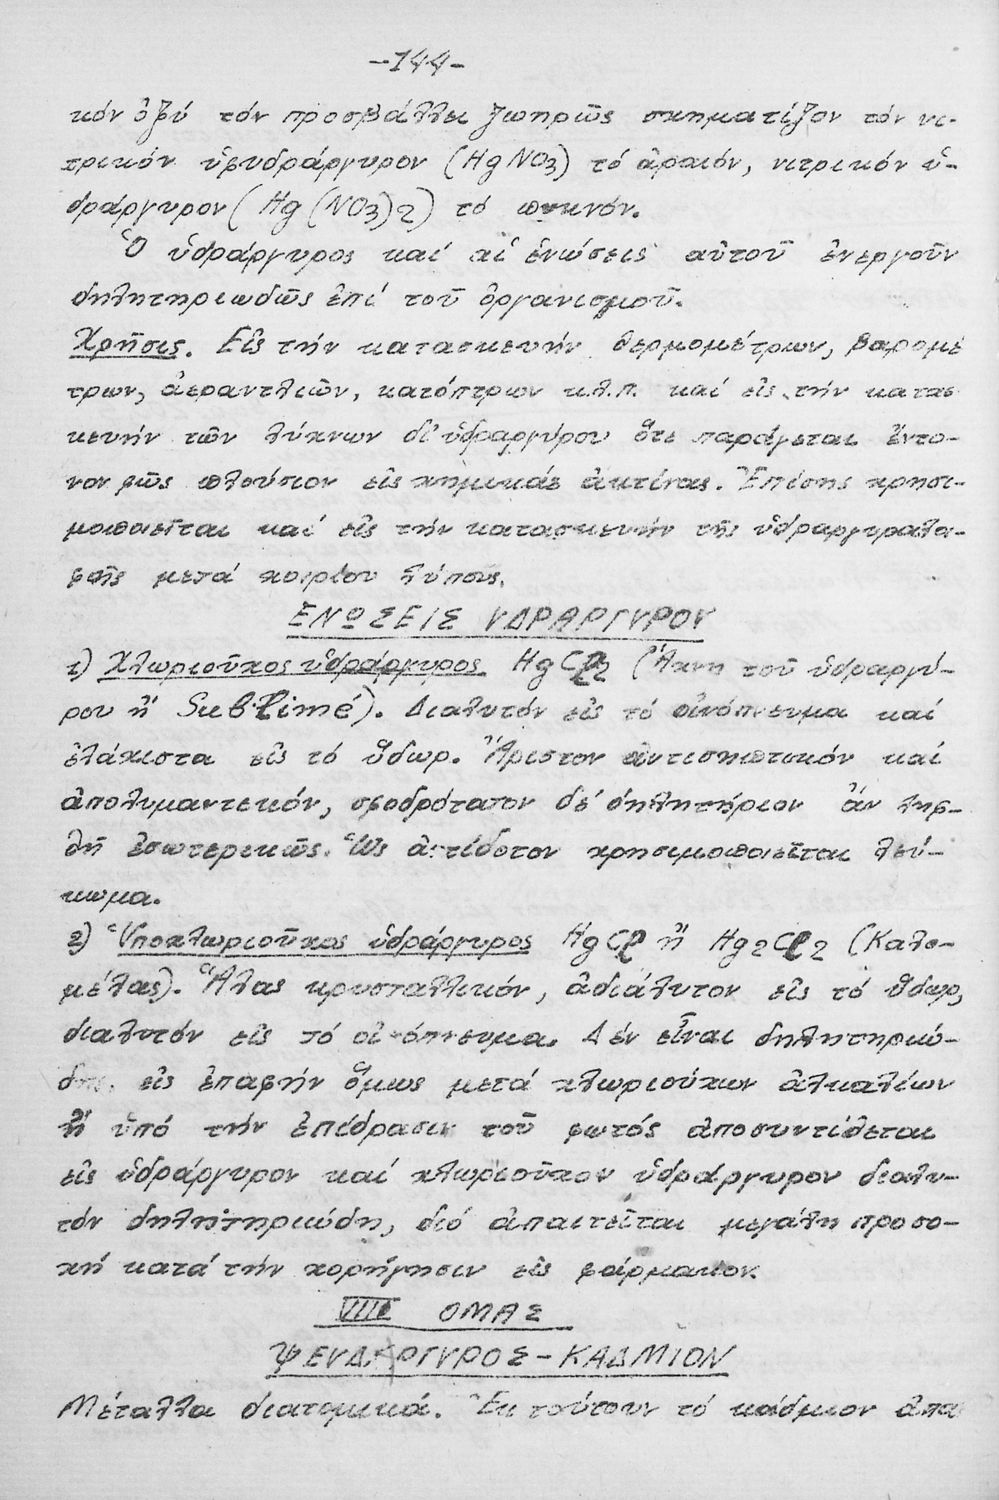 -144-
κόν ὀξύ τόν προσβάλλει ζωηρῶς σχηματίζον τόν νι-
τρικόν ὑφυδράργυρον (HgNO3) τό ἀραιόν, νιτρικόν ὑ-
δράργυρον (Hg(NO3)2) τό πυκνόν.
Ὁ ὑδράργυρος καί αἱ ἑνώσεις αὐτοῦ ἐνεργοῦν
δηλητηριωδῶς ἐπί τοῦ ὀργανισμοῦ.
Χρῆσις. Εἰς τήν κατασκευήν θερμομέτρων, βαρομέ
τρων, ἀεραντλιῶν, κατόπτρων κ.λ.π. καί εἰς τήν κατασ
κευήν τῶν λύχνων δι' ὑδραργύρου ὅτε παράγεται ἔντο-
νον φῶς πλούσιον εἰς χημικάς ἀκτῖνας. Ἐπίσης χρησι-
μοποιεῖται καί εἰς τήν κατασκευήν τῆς ὑδραργυραλοι-
φῆς μετά χοιρίου λίπους.
ΕΝΩΣΕΙΣ ΥΔΡΑΡΓΥΡΟΥ
1) Χλωριοῦχος ὑδράργυρος HgCl2 (Ἄχνη τοῦ ὑδραργύ-
ρου ἤ Sublimé). Διαλυτόν εἰς τό οἰνόπνευμα καί
ἐλάχιστα εἰς τό ὕδωρ. Ἄριστον ἀντισηπτικόν καί
ἀπολυμαντικόν, σφοδρότατον δέ δηλητήριον ἄν ληφ-
θῇ ἐσωτερικῶς. Ὡς ἀντίδοτον χρησιμοποιεῖται λεύ-
κωμα.
2) Ὑποχλωριοῦχος ὑδράργυρος HgCl ἤ Hg2Cl2 (Καλο-
μέλας). Ἅλας κρυσταλλικόν, ἀδιάλυτον εἰς τό ὕδωρ,
διαλυτόν εἰς τό οἰνόπνευμα. Δέν εἶναι δηλητηριώ-
δης εἰς ἐπαφήν ὅμως μετά χλωριούχων ἀλκαλίων
ἤ ὑπό τήν ἐπίδρασιν τοῦ φωτός ἀποσυντίθεται
εἰς ὑδράργυρον καί χλωριοῦχον ὑδράργυρον διαλυ-
τόν δηλητηριώδη, διό ἀπαιτεῖται μεγάλη προσο-
χή κατά τήν χορήγησιν εἰς φάρμακον.
VIII ΟΜΑΣ
ΨΕΥΔΑΡΓΥΡΟΣ-ΚΑΔΜΙΟΝ
Μέταλλα διατομικά. Ἐκ τούτων τό κάδμιον ἀπα